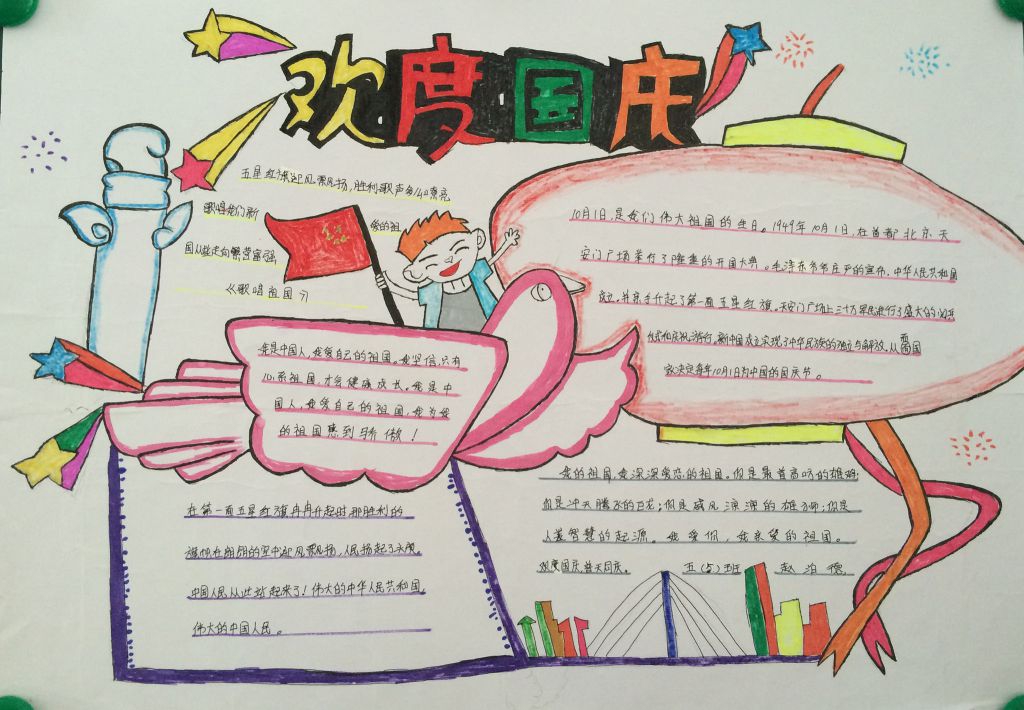 欢度国庆
五星红旗迎风飘扬,胜利歌声多么嘹亮
歌唱我们新
爱的祖
国从此走向繁荣富强
《歌唱祖国》
10月1日,是我们伟大祖国的生日。1949年10月1日,在首都北京天
安门广场举行了隆重的开国大典。毛泽东爷爷庄严的宣布,中华人民共和国
成立,并亲手升起了第一面五星红旗。天安门广场上三十万军民进行了盛大的阅兵
和庆祝游行。新中国成立实现了中华民族的独立与解放,从
国
家决定每年10月1日为中国的国庆节。
我是中国人,我爱自己的祖国。我坚信,只有
心系祖国,才会健康成长。我是中
国人,我爱自己的祖国,我为我
的祖国感到骄傲!
在第一面五星红旗冉冉升起时,那胜利的
旗帜在朗朗的空中迎风飘扬,人民扬起了头颅,
中国人民从此站起来了!伟大的中华人民共和国,
伟大的中国人民。
我的祖国,我深深爱恋的祖国。你是最首高吭的雄鸡
你是冲天腾飞的巨龙;你是威风凛凛的雄狮;你是
人类智慧的起源。我爱你,我亲爱的祖国。
欢度国庆,普天同庆。 五(5)班 赵泊穗